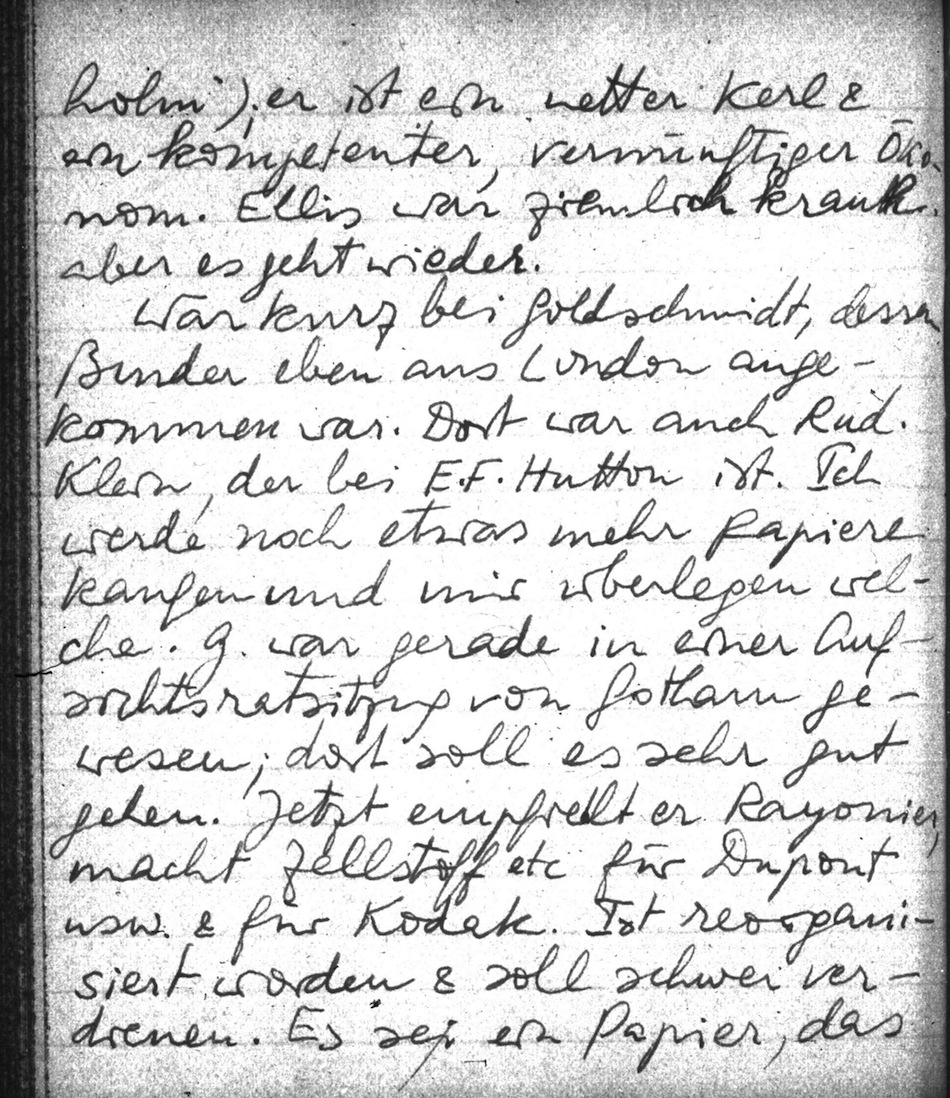 holm); er ist ein netter Kerl &
ein kompetenter, vernünftiger Öko-
nom. Ellis war ziemlich krank,
aber es geht wieder.
War kurz bei Goldschmidt, dessen
Bruder eben aus London ange-
kommen war. Dort war auch Rud.
Klein, der bei E.F. Hutton ist. Ich
werde noch etwas mehr Papiere
kaufen und mir überlegen wel-
che. G. war gerade in einer Auf-
sichtsratsitzung von Gotham ge-
wesen; dort soll es sehr gut
gehen. Jetzt empfiehlt er Rayonier,
macht Zellstoff etc für Dupont
usw. & für Kodak. Ist reorgani-
siert worden & soll schwer ver-
dienen. Es sei ein Papier, das